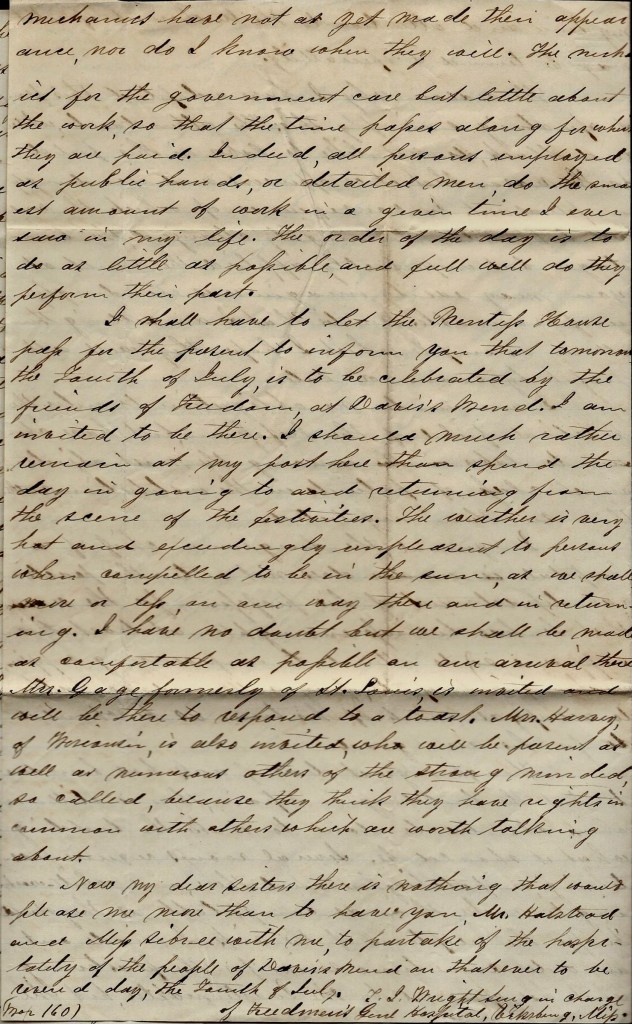 mechanics have not as yet made their appear
ance, nor do I know when they will. The mech
ics for the government care but little about
the work, so that the time passes along for which
they are paid. Indeed, all persons employed
as public hands, or detailed men, do the smal
est amount of work in a given time I ever
saw in my life. The order of the day is to
do as little as possible, and full well do they
perform their part.
I shall have to let the Prentiss House
pass for the present to inform you that tomorrow
the Fourth of July, is to be celebrated by the
friends of Freedom, at Davis's Bend. I am
invited to be there. I should much rather
remain at my post here than spend the
day in going to and returning from
the scene of the festivities. The weather is very
hot and exceedingly unpleasent to persons
when compelled to be in the sun, as we shall
more or less, on our way there and in return-
ing. I have no doubt but we shall be made
as comfortable as possible on our arrival there
Mrs. Gage formerly of St. Louis, is invited and
will be there to respond to a toast. Mrs. Harvey,
of Wisconsin, is also invited, who will be present as
well as numerous others of the strong minded,
so called, because they think they have rights in
common with others which are worth talking
about.
Now my dear sisters there is nothing that would
please me more than to have you, Mr. Halstead
and Miss Sibree with me, to partake of the hospi-
tality of the people of Davis's Bend on that ever to be
revered day, the Fourth of July. Wright surg in charge
of Freedmen's Genl Hospital, Vicksburg, Miss.
(60)